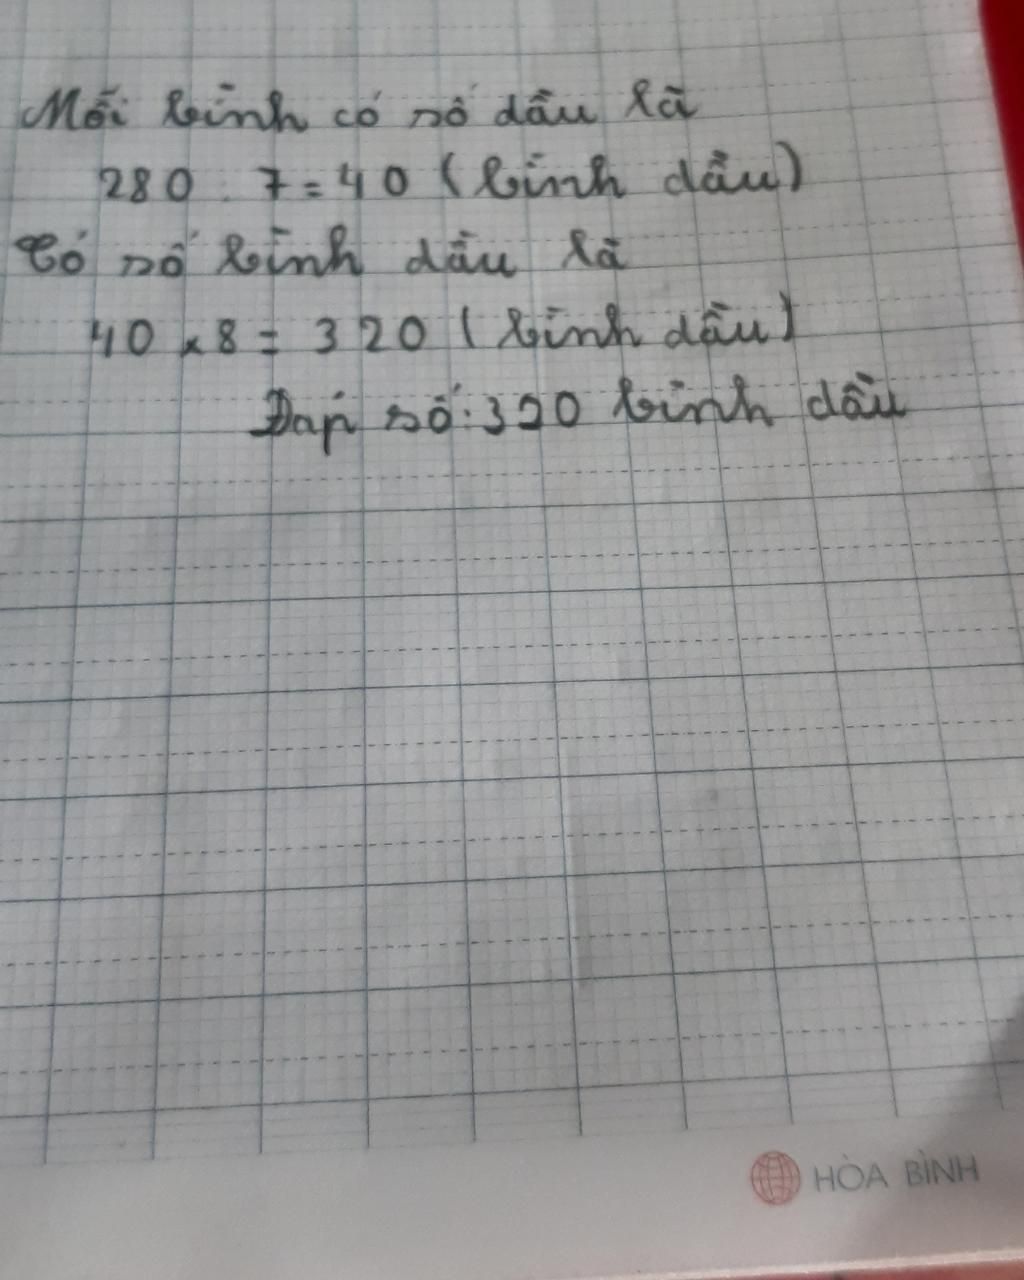 Mỗi bình có số dầu là
280 : 7 = 40 (bình dầu)
Có số bình dầu là
40 x 8 = 320 (bình dầu)
Đáp số: 320 bình dầu
HÒA BÌNH